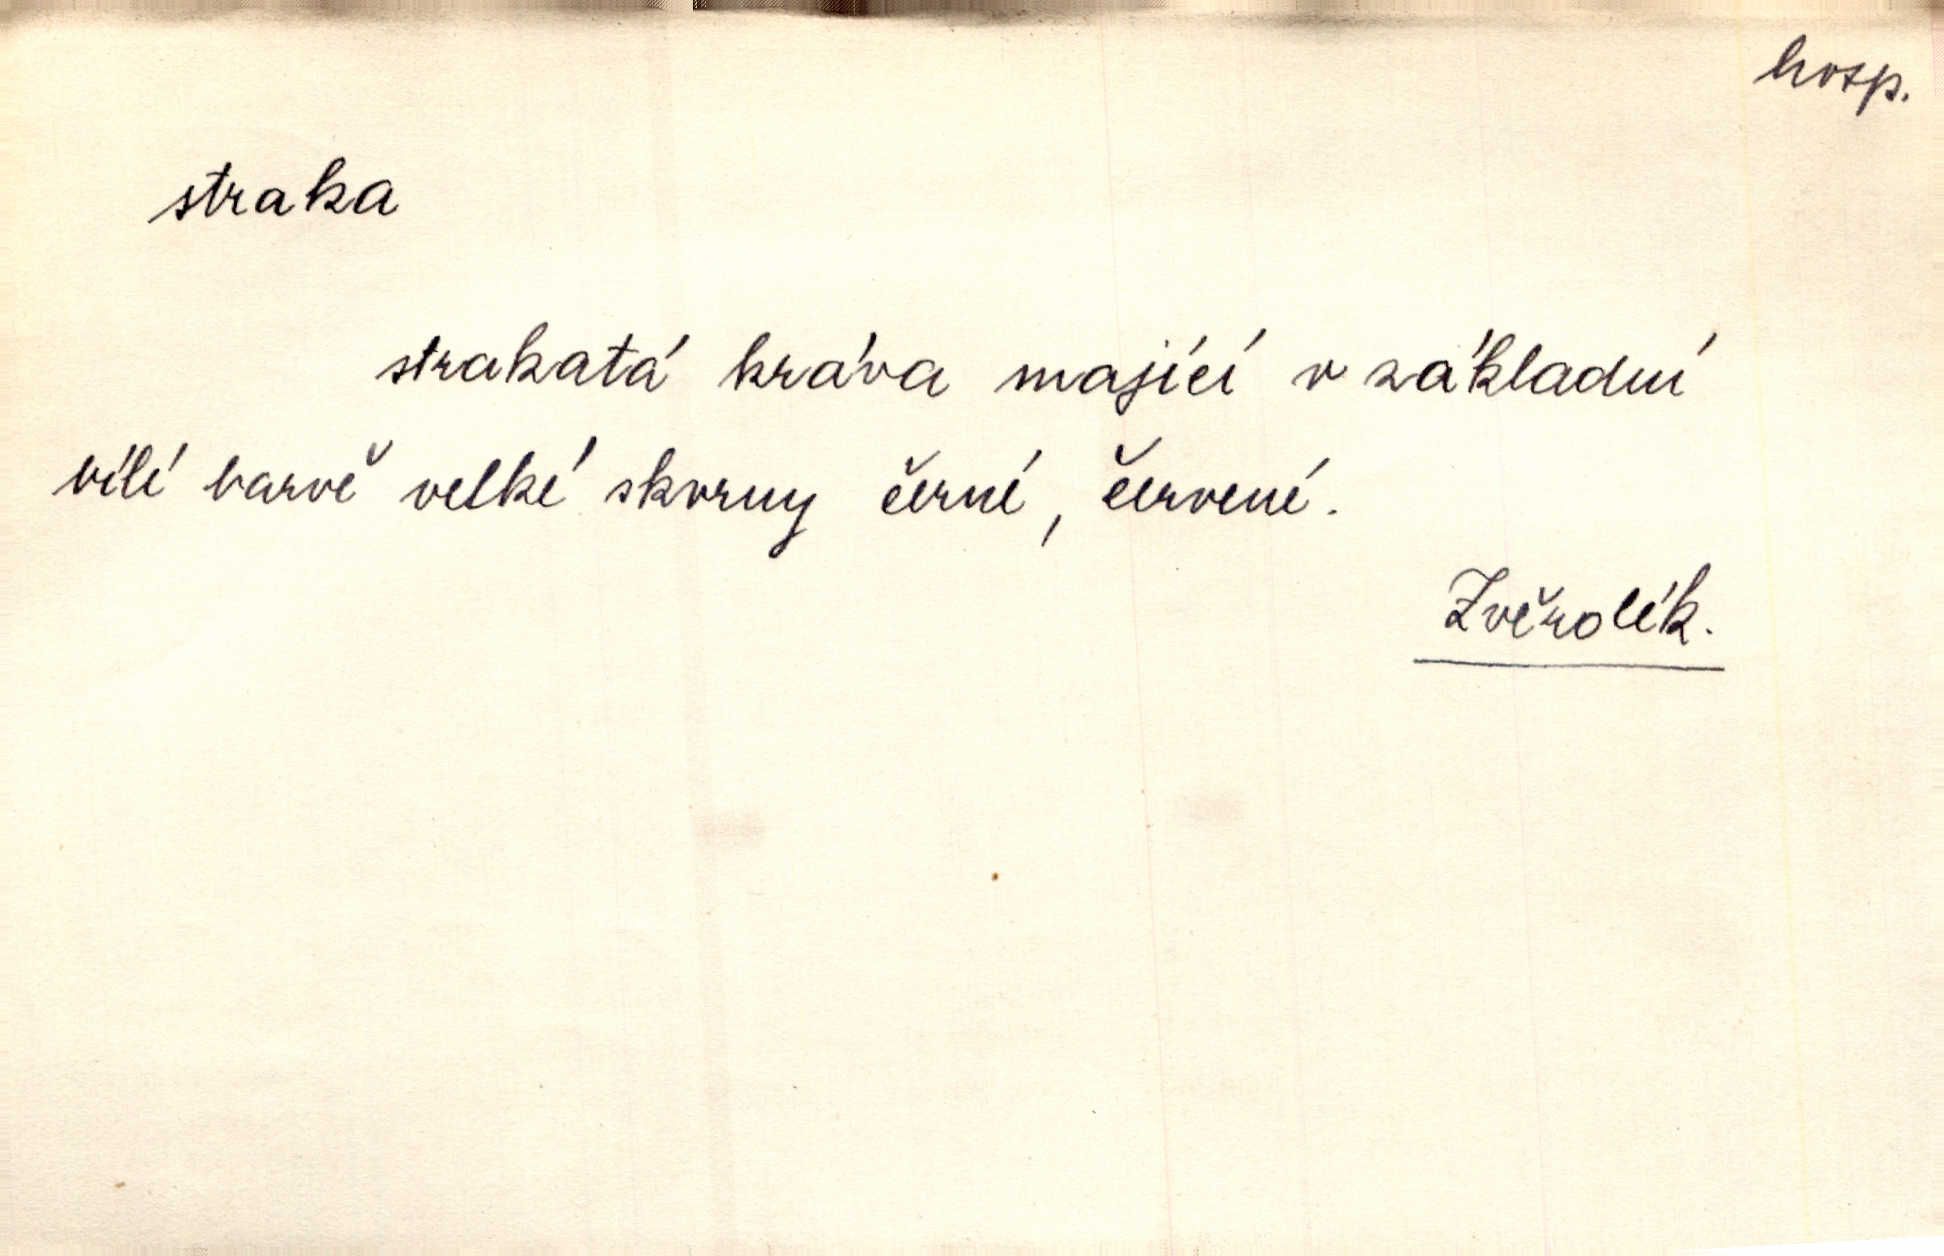 hosp.
straka
strakatá kráva mající v základní
bílé barvě velké skvrny černé, červené.
Zvěrolék.